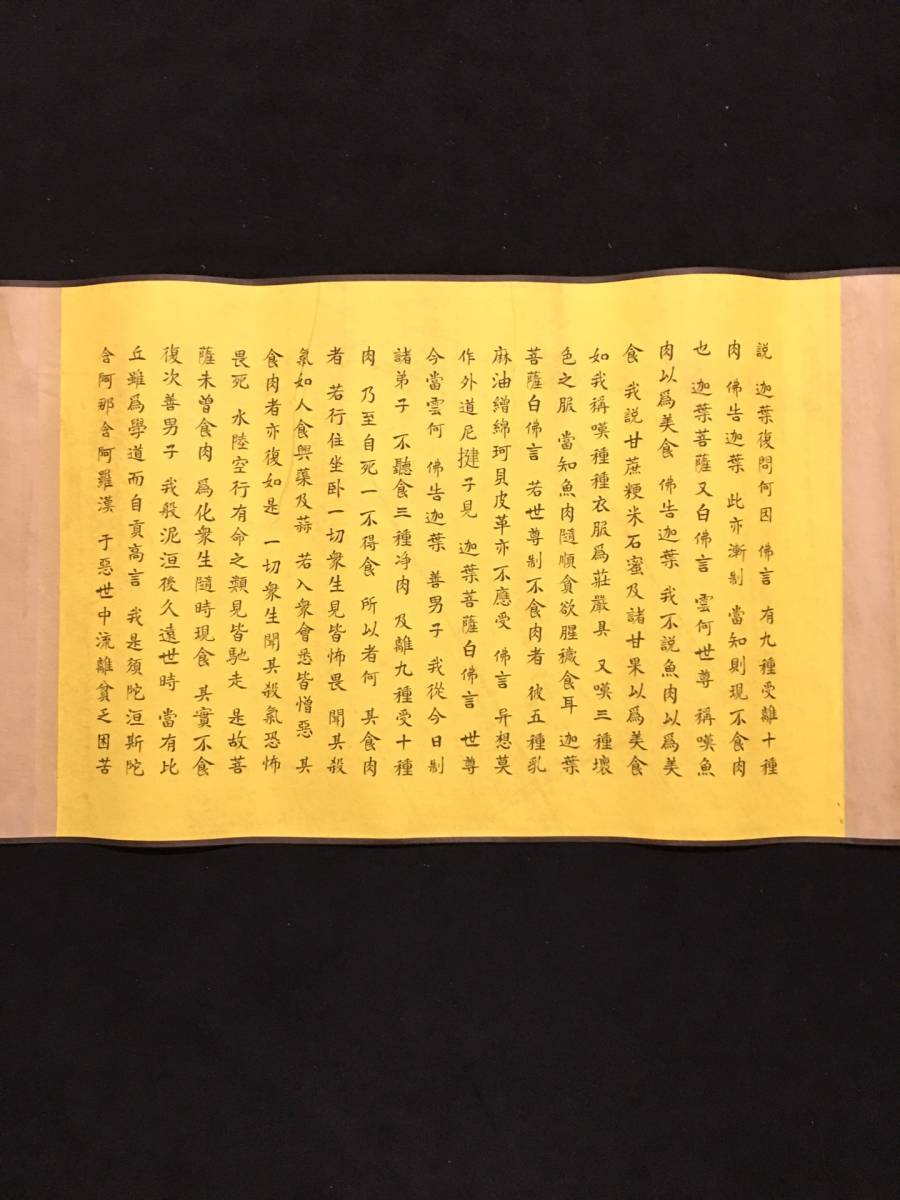 説 迦葉復問何因 佛言 有九種受離十種
肉 佛告迦葉 此亦漸制 當知則現不食肉
也 迦葉菩薩又白佛言 雲何世尊 稱嘆魚
肉以爲美食 佛告迦葉 我不説魚肉以爲美
食 我説甘蔗粳米石蜜及諸甘果以爲美食
如我稱嘆種種衣服爲莊嚴具 又嘆三種壞
色之服 當知魚肉隨順貪欲腥穢食耳 迦葉
菩薩白佛言 若世尊制不食肉者 彼五種乳
麻油繒綿珂貝皮革亦不應受 佛言 异想莫
作外道尼揵子見 迦葉菩薩白佛言 世尊
今當雲何 佛告迦葉 善男子 我從今日制
諸弟子 不聽食三種净肉 及離九種受十種
肉 乃至自死一不得食 所以者何 其食肉
者 若行住坐卧一切衆生見皆怖畏 聞其殺
氣如人食興蕖及蒜 若入衆會悉皆憎惡 其
食肉者亦復如是 一切衆生聞其殺氣恐怖
畏死 水陸空行有命之類見皆馳走 是故菩
薩未曾食肉 爲化衆生隨時現食 其實不食
復次善男子 我般泥洹後久遠世時 當有比
丘雖爲學道而自貢高言 我是須陀洹斯陀
含阿那含阿羅漢 于惡世中流離貧乏困苦